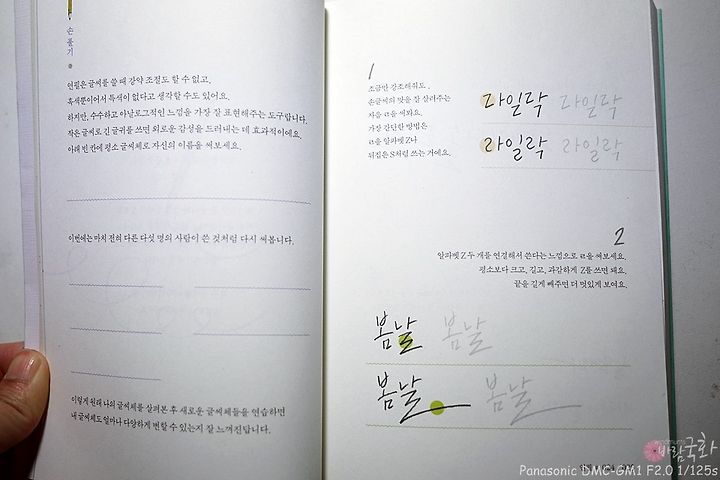 손풀기
연필은 글씨를 쓸 때 강약 조절도 할 수 없고,
흑색뿐이어서 특색이 없다고 생각할 수도 있어요.
하지만, 수수하고 아날로그적인 느낌을 가장 잘 표현해주는 도구랍니다.
작은 글씨로 긴 글귀를 쓰면 외로운 감성을 드러내는 데 효과적이에요.
아래 빈 칸에 평소 글씨체로 자신의 이름을 써보세요.
이번에는 마치 전혀 다른 다섯 명의 사람이 쓴 것처럼 다시 써봅니다.
이렇게 원래 나의 글씨체를 살펴본 후 새로운 글씨체들을 연습하면
내 글씨체도 얼마나 다양하게 변할 수 있는지 잘 느껴진답니다.
1
조금만 강조해줘도,
손글씨의 맛을 잘 살려주는
자음 ㄹ을 써봐요.
가장 간단한 방법은
ㄹ을 알파벳 Z나
뒤집은 S처럼 쓰는 거예요.
라일락 라일락
라일락 라일락
2
알파벳 Z 두 개를 연결해서 쓴다는 느낌으로 ㄹ을 써보세요.
평소보다 크고, 길고, 과감하게 Z를 쓰면 돼요.
끝을 길게 빼주면 더 멋있게 보여요.
봄날 봄날
봄날 봄날
바람국화
Panasonic DMC-GM1 F2.0 1/125s